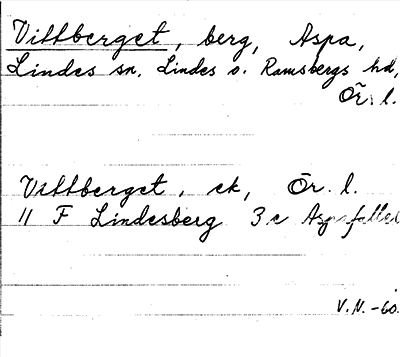 Vittberget, berg, Aspa,
Lindes sn, Lindes o. Ramsbergs hd,
Ör. l.
Vittberget, ek, Ör. l.
11 F Lindesberg 3 c Aspafallet
V.N. -60.